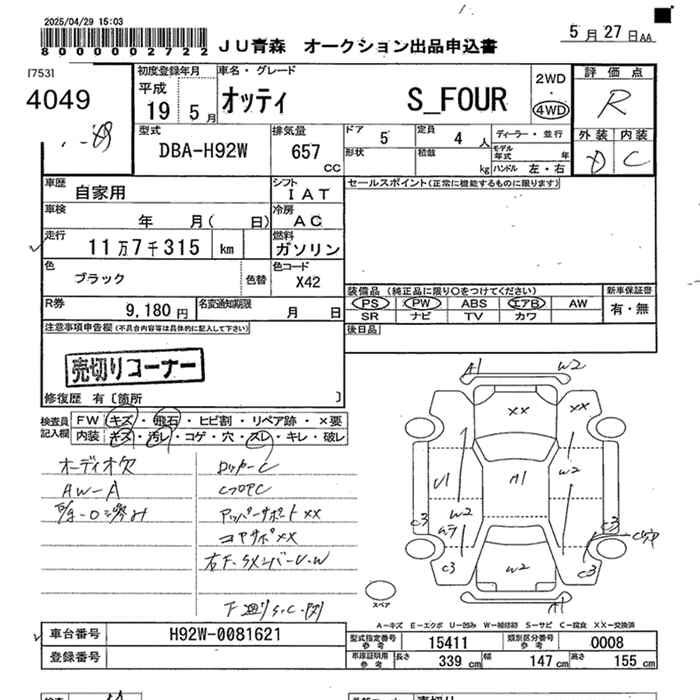 2025/04/29 15:03
800000002722
JU青森 オークション出品申込書
5月27日AA
17531
4049
初度登録年月
平成
19 5月
車名・グレード
オッティ S_FOUR
2WD
・
4WD
評価点
R
外装 内装
D C
型式
DBA-H92W
排気量
657
CC
ドア 5
定員 4 人
ディーラー・並行
形状
積載 kg
モデル年式 年
ハンドル 左・右
車歴
自家用
シフト
IAT
セールスポイント(正常に機能するものに限ります)
車検
年 月( 日)
冷房
AC
走行
11万7千315 km
燃料
ガソリン
色
ブラック
色替
色コード
X42
装備品(純正品に限り○をつけてください)
新車保証書
PS PW ABS エアB AW
有・無
SR ナビ TV カワ
R券
9,180円
名変通知期限
月 日
後日品
注意事項申告欄(不具合内容等は具体的に記入して下さい)
売切りコーナー
修復歴 有〔箇所 〕
検査員記入欄
FW キズ・飛石・ヒビ割・リペア跡・×要
内装 キズ・汚レ・コゲ・穴・スレ・キレ・破レ
オーディオ欠
AW-A
ロッカーC
CフロアC
アッパーサポートXX
コアサポXX
A1 W2
XX XX
U1 A1 W2
W2
C3 C3
C3 W2 C3
A1
スペア
A-キズ E-エクボ U-凹み W-補修跡 S-サビ C-腐食 XX-交換済
車台番号
H92W-0081621
登録番号
型式指定番号
参考
15411
類別区分番号
参考
0008
車検証明用
参考
長さ 339 cm
幅 147 cm
高さ 155 cm